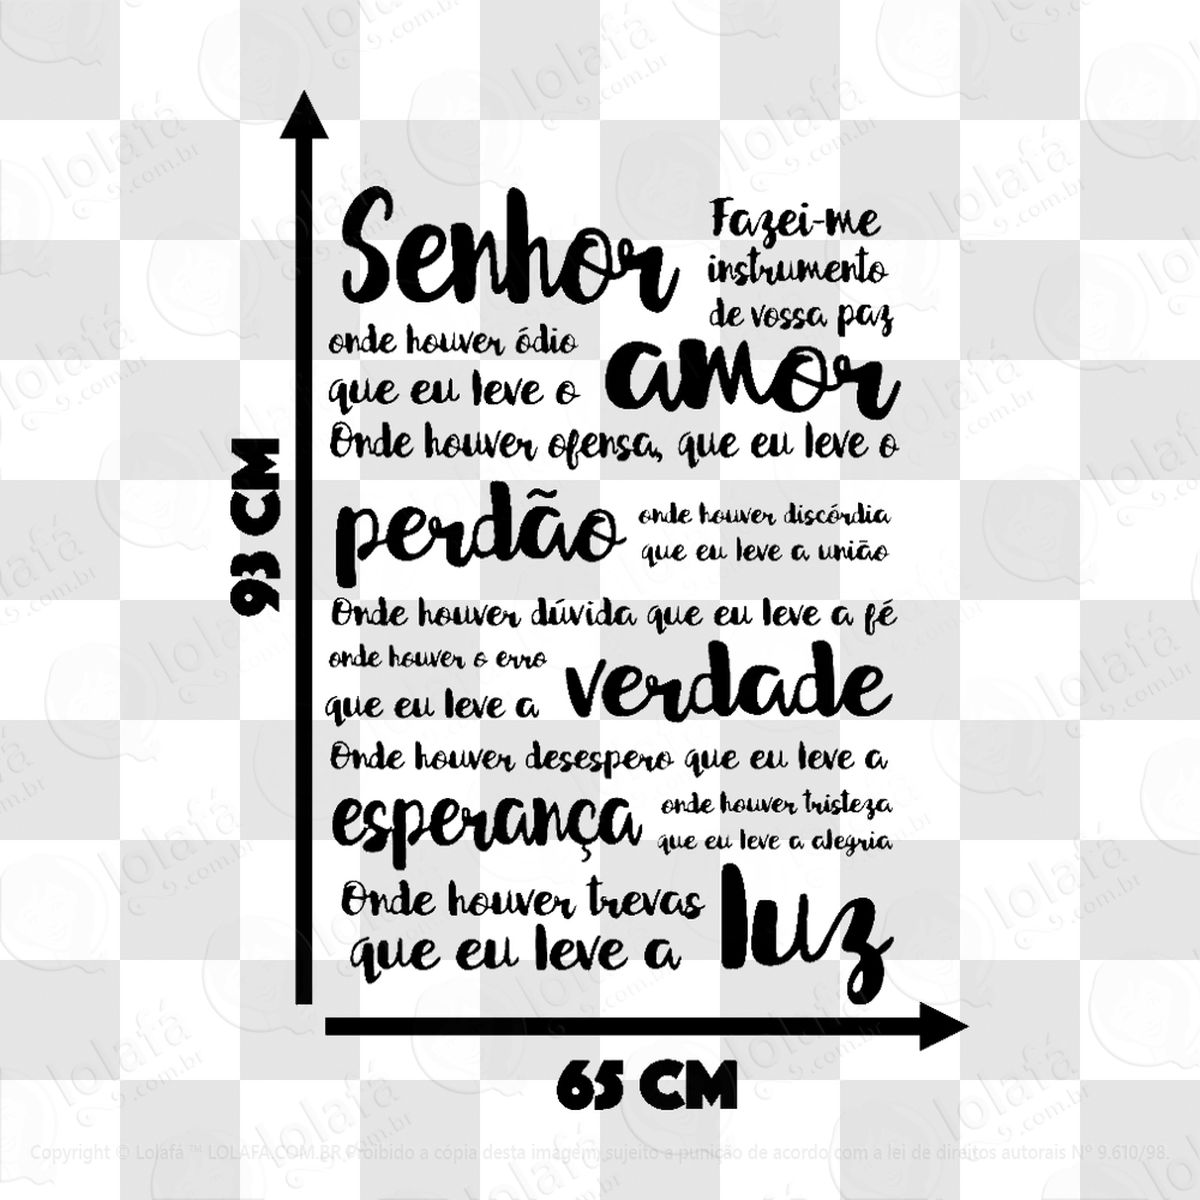 Senhor
Fazei-me
instrumento
de vossa paz
onde houver ódio
que eu leve o
amor
Onde houver ofensa, que eu leve o
perdão
onde houver discórdia
que eu leve a união
Onde houver dúvida que eu leve a fé
onde houver o erro
que eu leve a
verdade
Onde houver desespero que eu leve a
esperança
onde houver tristeza
que eu leve a alegria
Onde houver trevas
que eu leve a
luz
93 CM
65 CM
lolafá
.com.br
Copyright © Lolafá ™ LOLAFA.COM.BR Proibido a cópia desta imagem, sujeito a punição de acordo com a lei de direitos autorais Nº 9.610/98.